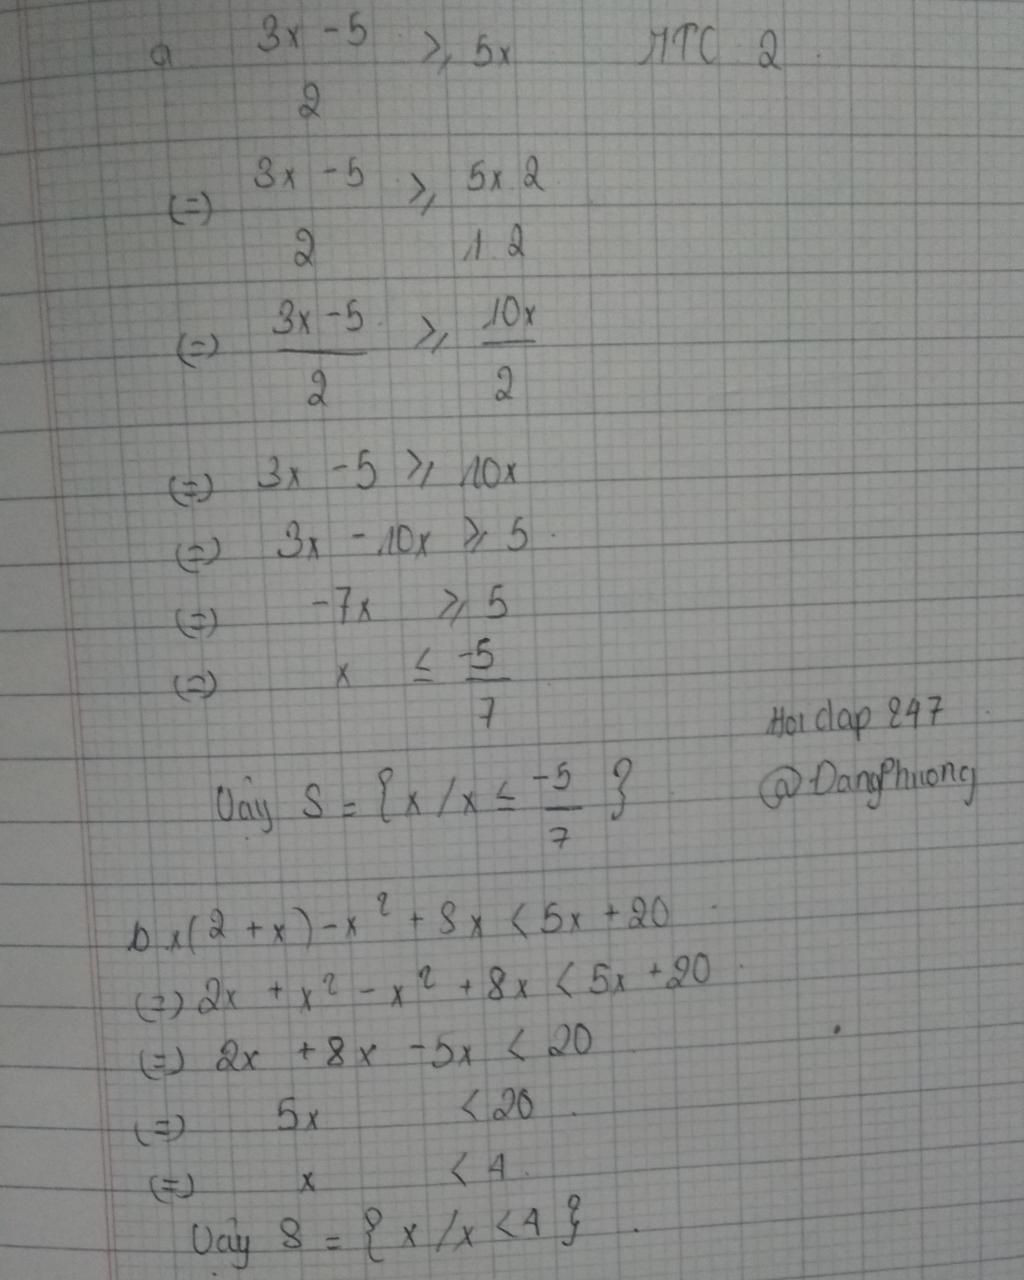 a 3x - 5 ≥ 5x MTC 2
2
(=) 3x - 5 ≥ 5x 2
2 1. 2
(=) 3x - 5 ≥ 10x
2 2
(=) 3x - 5 ≥ 10x
(=) 3x - 10x ≥ 5
(=) -7x ≥ 5
(=) x ≤ -5
7
Hoi dap 247
Vậy S = { x / x ≤ -5/7 }
@DangPhuong
b x(2 + x) - x² + 8x < 5x + 20
(=) 2x + x² - x² + 8x < 5x + 20
(=) 2x + 8x - 5x < 20
(=) 5x < 20
(=) x < 4
Vậy S = { x / x < 4 }